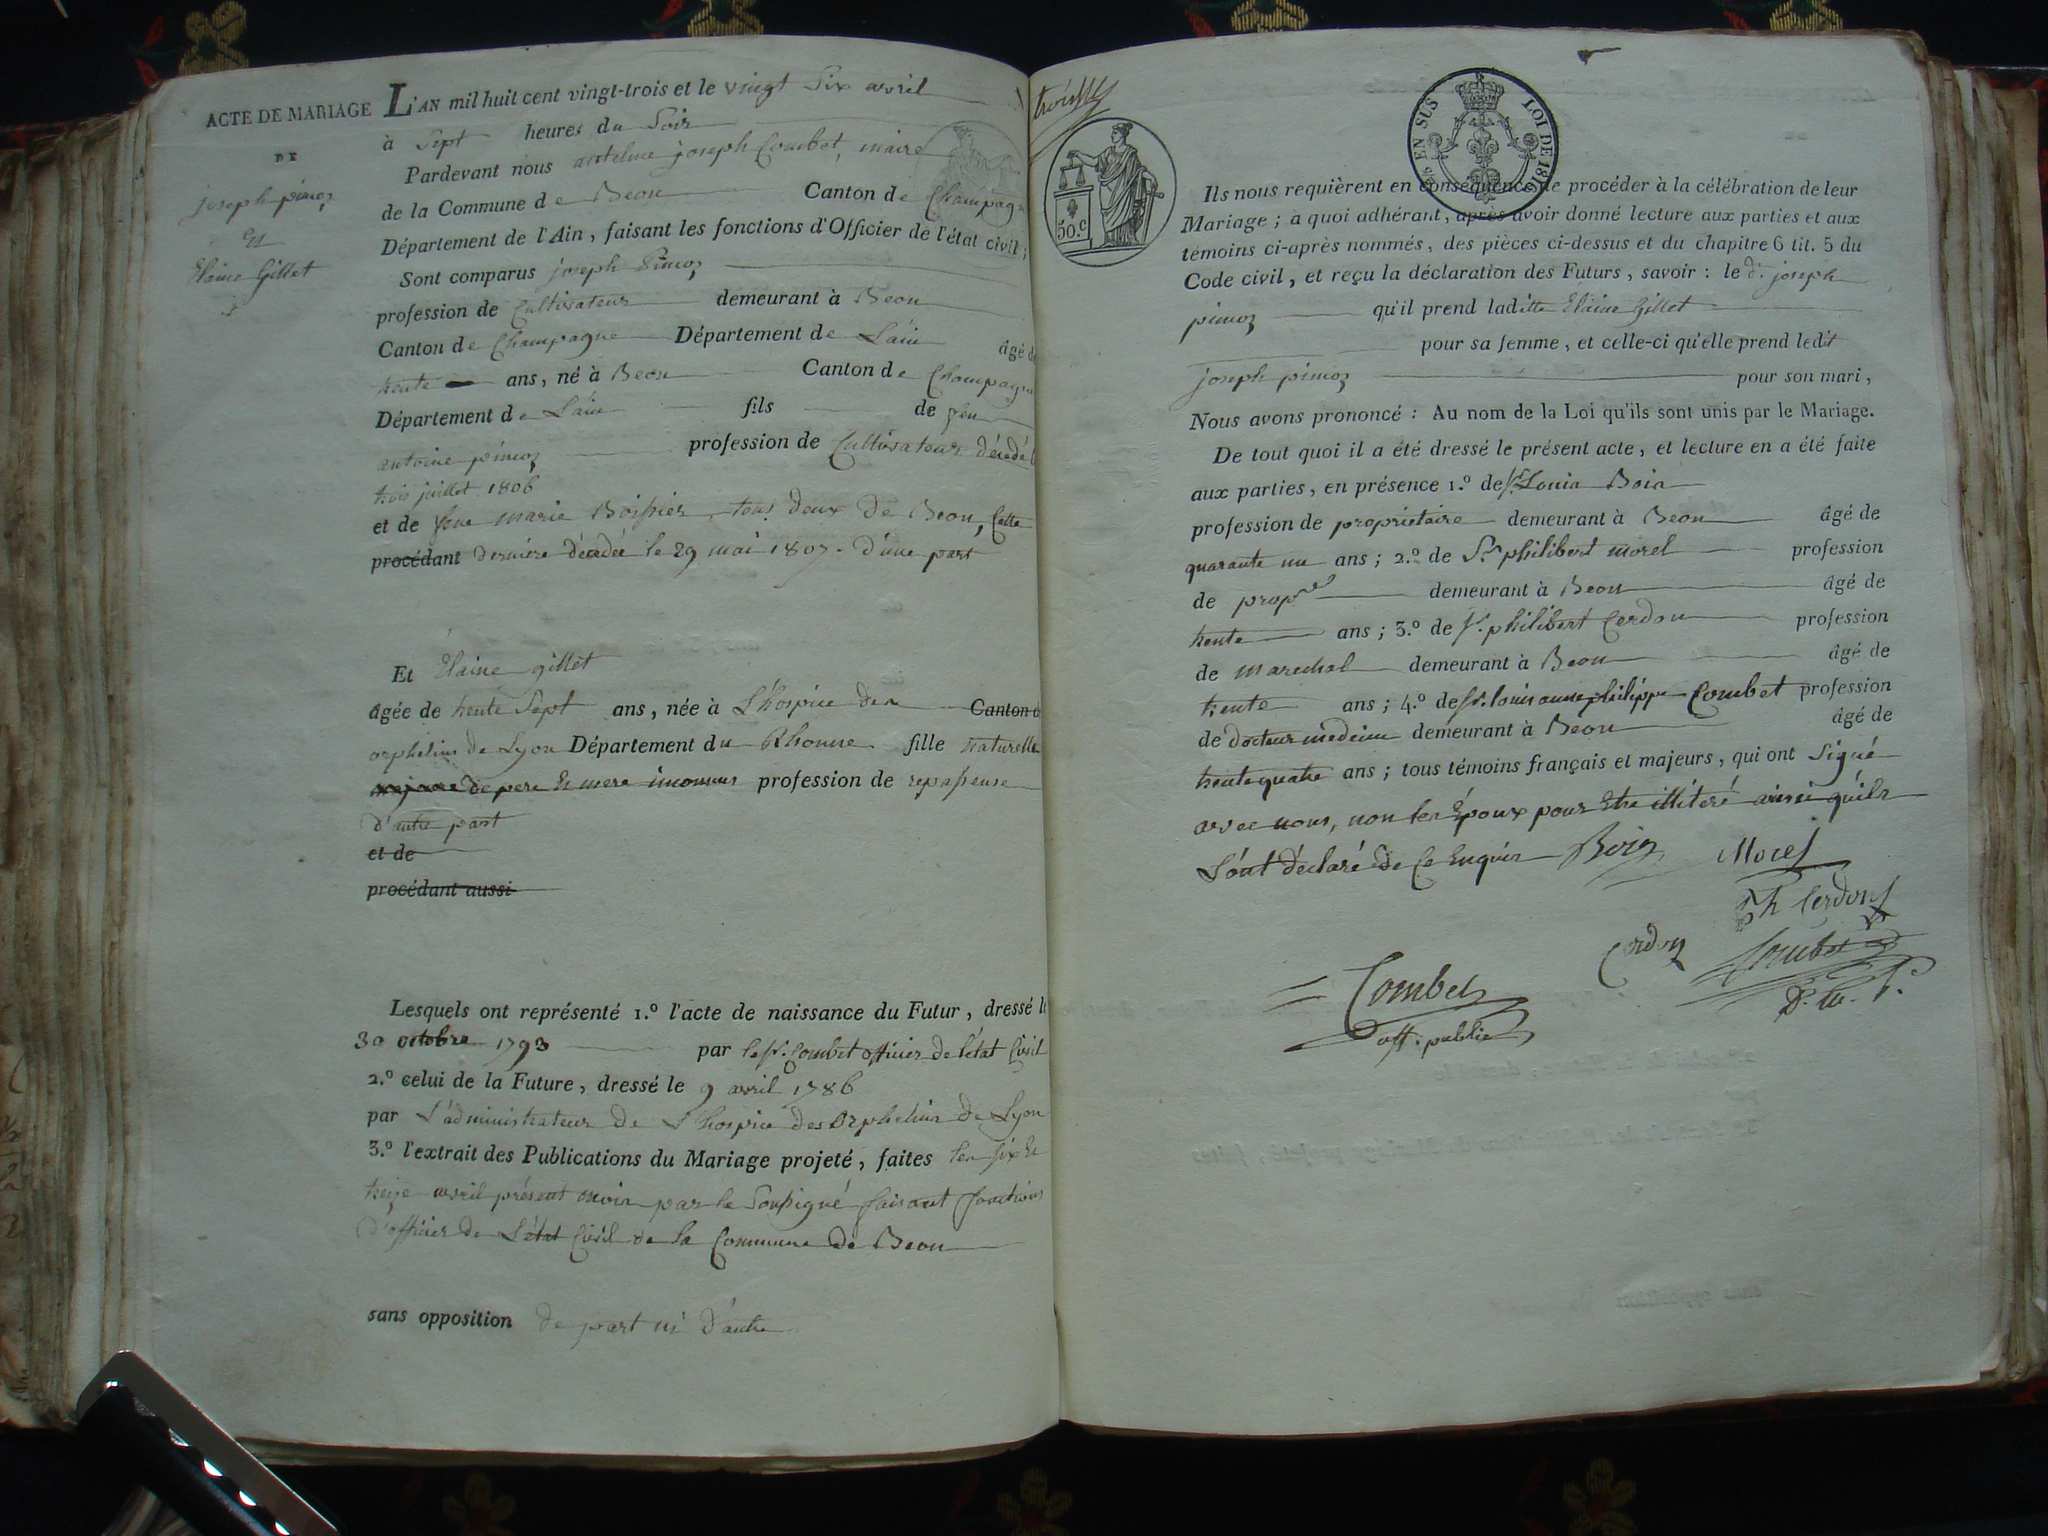 ACTE DE MARIAGE
DE
joseph pimoz
Et
Elaine Gillet
L'AN mil huit cent vingt-trois et le vingt Six avril
à Sept heures du Soir
Pardevant nous antelme joseph Combet, maire
de la Commune de Beon Canton de Champagne
Département de l'Ain, faisant les fonctions d'Officier de l'état civil;
Sont comparus joseph Pimoz
profession de Cultivateur demeurant à Beon
Canton de Champagne Département de L'ain âgé de
trente ans, né à Beon Canton de Champagne
Département de L'ain fils de feu
antoine pimoz profession de Cultivateur décédé le
trois juillet 1806
et de feue marie Boissier, tous deux de Beon, Cette
procédant derniere décédée le 29 mai 1807. d'une part
Et Elaine gillet
âgée de trente Sept ans, née à L'hospice des Canton d
orphelins de Lyon Département du Rhonne fille naturelle
majeure de pere Et mere inconnus profession de repasseuse
d'autre part
et de
procédant aussi
Lesquels ont représenté 1.º l'acte de naissance du Futur, dressé le
30 octobre 1793 par le Sr. Combet officier de l'état Civil
2.º celui de la Future, dressé le 9 avril 1786
par L'administrateur de L'hospice des Orphelins de Lyon
3.º l'extrait des Publications du Mariage projeté, faites les six Et
treize avril présent mois par le Soussigné faisant fonctions
d'officier de L'état Civil de la Commune de Beon
sans opposition de part ni d'autre
50.c
EN SUS LOI DE 1816
Ils nous requièrent en conséquence de procéder à la célébration de leur
Mariage; à quoi adhérant, après avoir donné lecture aux parties et aux
témoins ci-après nommés, des pièces ci-dessus et du chapitre 6 tit. 5 du
Code civil, et reçu la déclaration des Futurs, savoir: le dt. joseph
pimoz qu'il prend laditte Elaine Gillet
pour sa femme, et celle-ci qu'elle prend ledit
joseph pimoz pour son mari,
Nous avons prononcé: Au nom de la Loi qu'ils sont unis par le Mariage.
De tout quoi il a été dressé le présent acte, et lecture en a été faite
aux parties, en présence 1.º de Sr. Louis Boin
profession de propriétaire demeurant à Beon âgé de
quarante un ans; 2.º de Sr. philibert morel profession
de propre demeurant à Beon âgé de
trente ans; 3.º de Sr. philibert Cerdon profession
de marechal demeurant à Beon âgé de
trente ans; 4.º de Sr. louis anne philippe Combet profession
de docteur médecin demeurant à Beon âgé de
trente quatre ans; tous témoins français et majeurs, qui ont Signé
avec nous, non les Époux pour Etre illiteré ainsi quils
L'ont déclaré de Ce Enquis Boin Morel
Ph Cerdon
Cerdon Combet
Combet D. M. P.
off. public